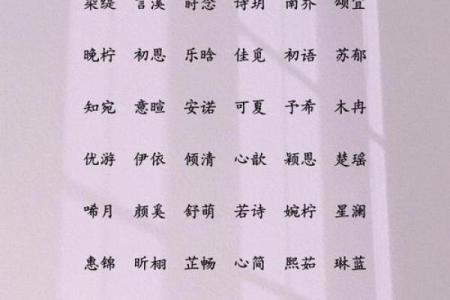 诗玥 南乔 颂宜
晚柠 初恩 乐晗 佳觅 初语 苏郁
知宛 意暄 安诺 可夏 予希 木冉
优游 伊依 倾清 心歆 颖思 楚瑶
唏月 颜奚 舒萌 若诗 婉柠 星澜
惠锦 昕栩 芷畅 心简 熙茹 琳蓝